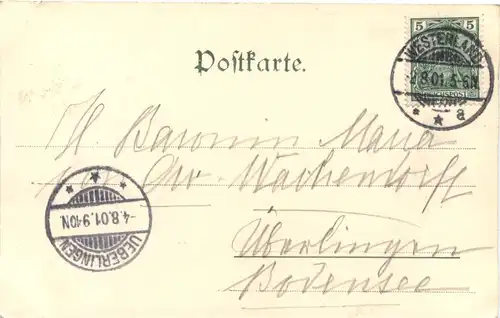 5 5
WESTERLAND
.8.01.5-6N
REICHSPOST
* * a
Postkarte.
Baronin Maria
Wachendorff
-4.8.01.9-10N
UEBERLINGEN
Überlingen
Bodensee